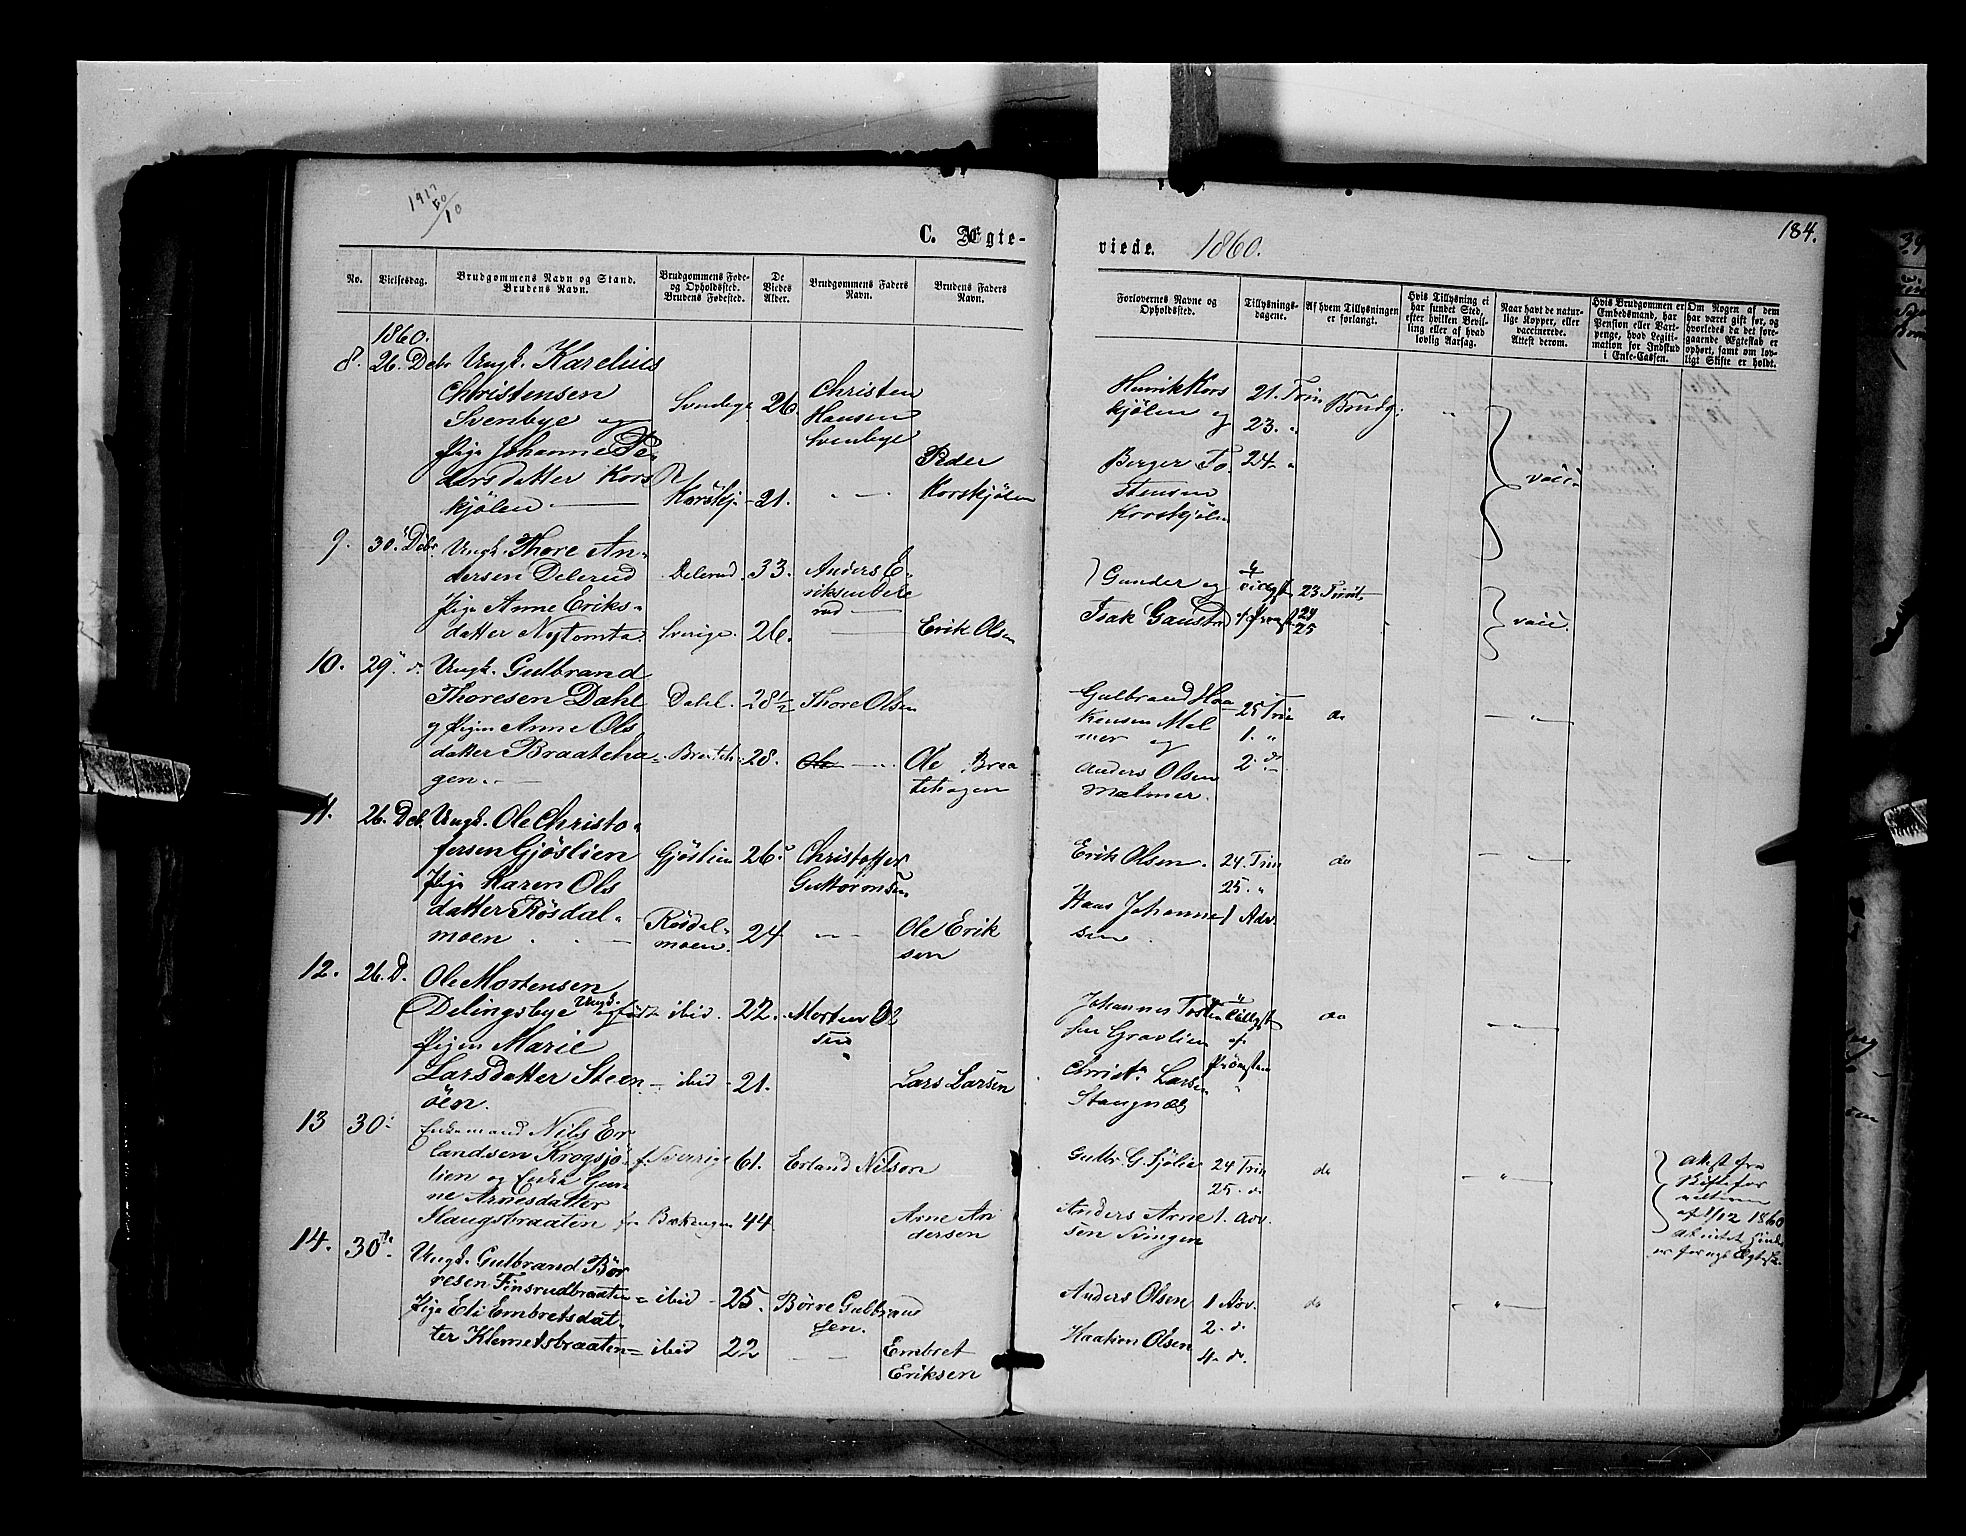 1917
184.
C. Ægte-
viede. 1860.
No.
Vielsesdag.
Brudgommens Navn og Stand.
Brudens Navn.
Brudgommens Føde-
og Opholdssted.
Brudens Fødested.
De
Viedes
Alder.
Brudgommens Faders
Navn.
Brudens Faders
Navn.
Forlovernes Navne og
Opholdssted.
Tillysnings-
dagene.
Af hvem Tillysningen
er forlangt.
Hvis Tillysning ei
har fundet Sted,
efter hvilken Bevil-
ling eller af hvad
lovlig Aarsag.
Naar havt de natur-
lige Kopper, eller
vaccinerede.
Attest derom.
Hvis Brudgommen er
Embedsmand, har
Pension eller Vart-
penge, hvad Legiti-
mation for Indskud
i Enke-Cassen.
Om Nogen af dem
har været gift før, og
hvorledes da det fore-
gaaende Ægteskab er
ophørt, samt om lov-
ligt Skifte er holdt.
1860.
8. 26. Debr Ungk. Karelius
Christensen
Svenbye og
Pige Johanne Pe-
dersdatter Kors
kjølen
26
Christen
Hansen
Svenbye
Korskj. 21.
Peder
Korskjølen
Henrik Kors
kjølen og
Berger To
stensen
Korskjølen
21. Trin
23. "
24. "
Brudg.
vacc.
9. 30. Debr. Ungk. Thore An-
dersen Delerud
Pige Anne Eriks-
datter Nytomta
Delerud. 33.
Sverige. 26.
Anders E-
riksen Dele
rud
Erik Olsen
Gunder og
Isak Gaustad
23 Trinit
24
25
vacc.
10. 29. d. Ungk. Gulbrand
Thoresen Dahl
og Pigen Anne Ols
datter Braateha-
gen.
Dahl. 28 1/2 Thore Olsen
Braateh 28.
Ole Braa
tehagen
Gulbrand Haa
kensen Mal
mer og
Anders Olsen
Malmer.
25 Trin
1. "
2. d
do
11. 26. Deb. Ungk. Ole Christo-
fersen Gjöslien
Pige Karen Ols
datter Rösdal-
moen
Gjöslien 26
Christoffer
Guttormsen
Rösdal-
moen. 24
Ole Erik
sen
Erik Olsen.
Hans Johanne
sen
24. Trin
25. "
1 Adv.
do
12. 26. D. Ole Mortensen
Delingsbye Ungk.
Pigen Marie
Larsdatter Steen
öen.
ibid. 22. Morten Ol
sen
ibid 21.
Lars Larsen
Johannes Tosten
sen Gravlien
Christ. Larsen
Stangnæs
do
13 30. Enkemand Nils Er
landsen Krogsjö-
lien og Enke Gun-
ne Arnesdatter
Haugsbraaten
f. Sverrige 61. Erland Nilson
44
Arne An
dersen
Gulbr. G. Sjölie
Anders Arne
sen Svingen
24 Trin
25. d.
1. Adv.
do
Attest fra
Skiftefor
af 1/12 1860
14. 30. Ungk. Gulbrand Bör
resen Finsrudbraaten
Pige Eli Embretsdat-
ter Klemetsbraaten
ibid 25. Börre Gulbrand
sen.
ibid 22
Embret
Eriksen
Anders Olsen
Haakon Olsen
1 Adv.
2. d.
4. d.
do